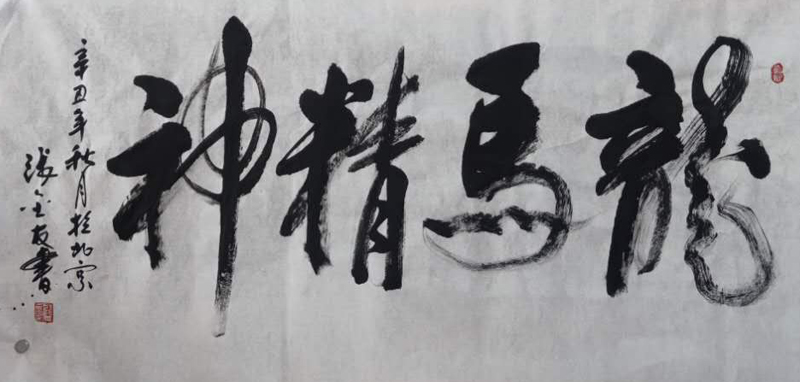 龍馬精神
辛丑年秋月於北京
張金友書